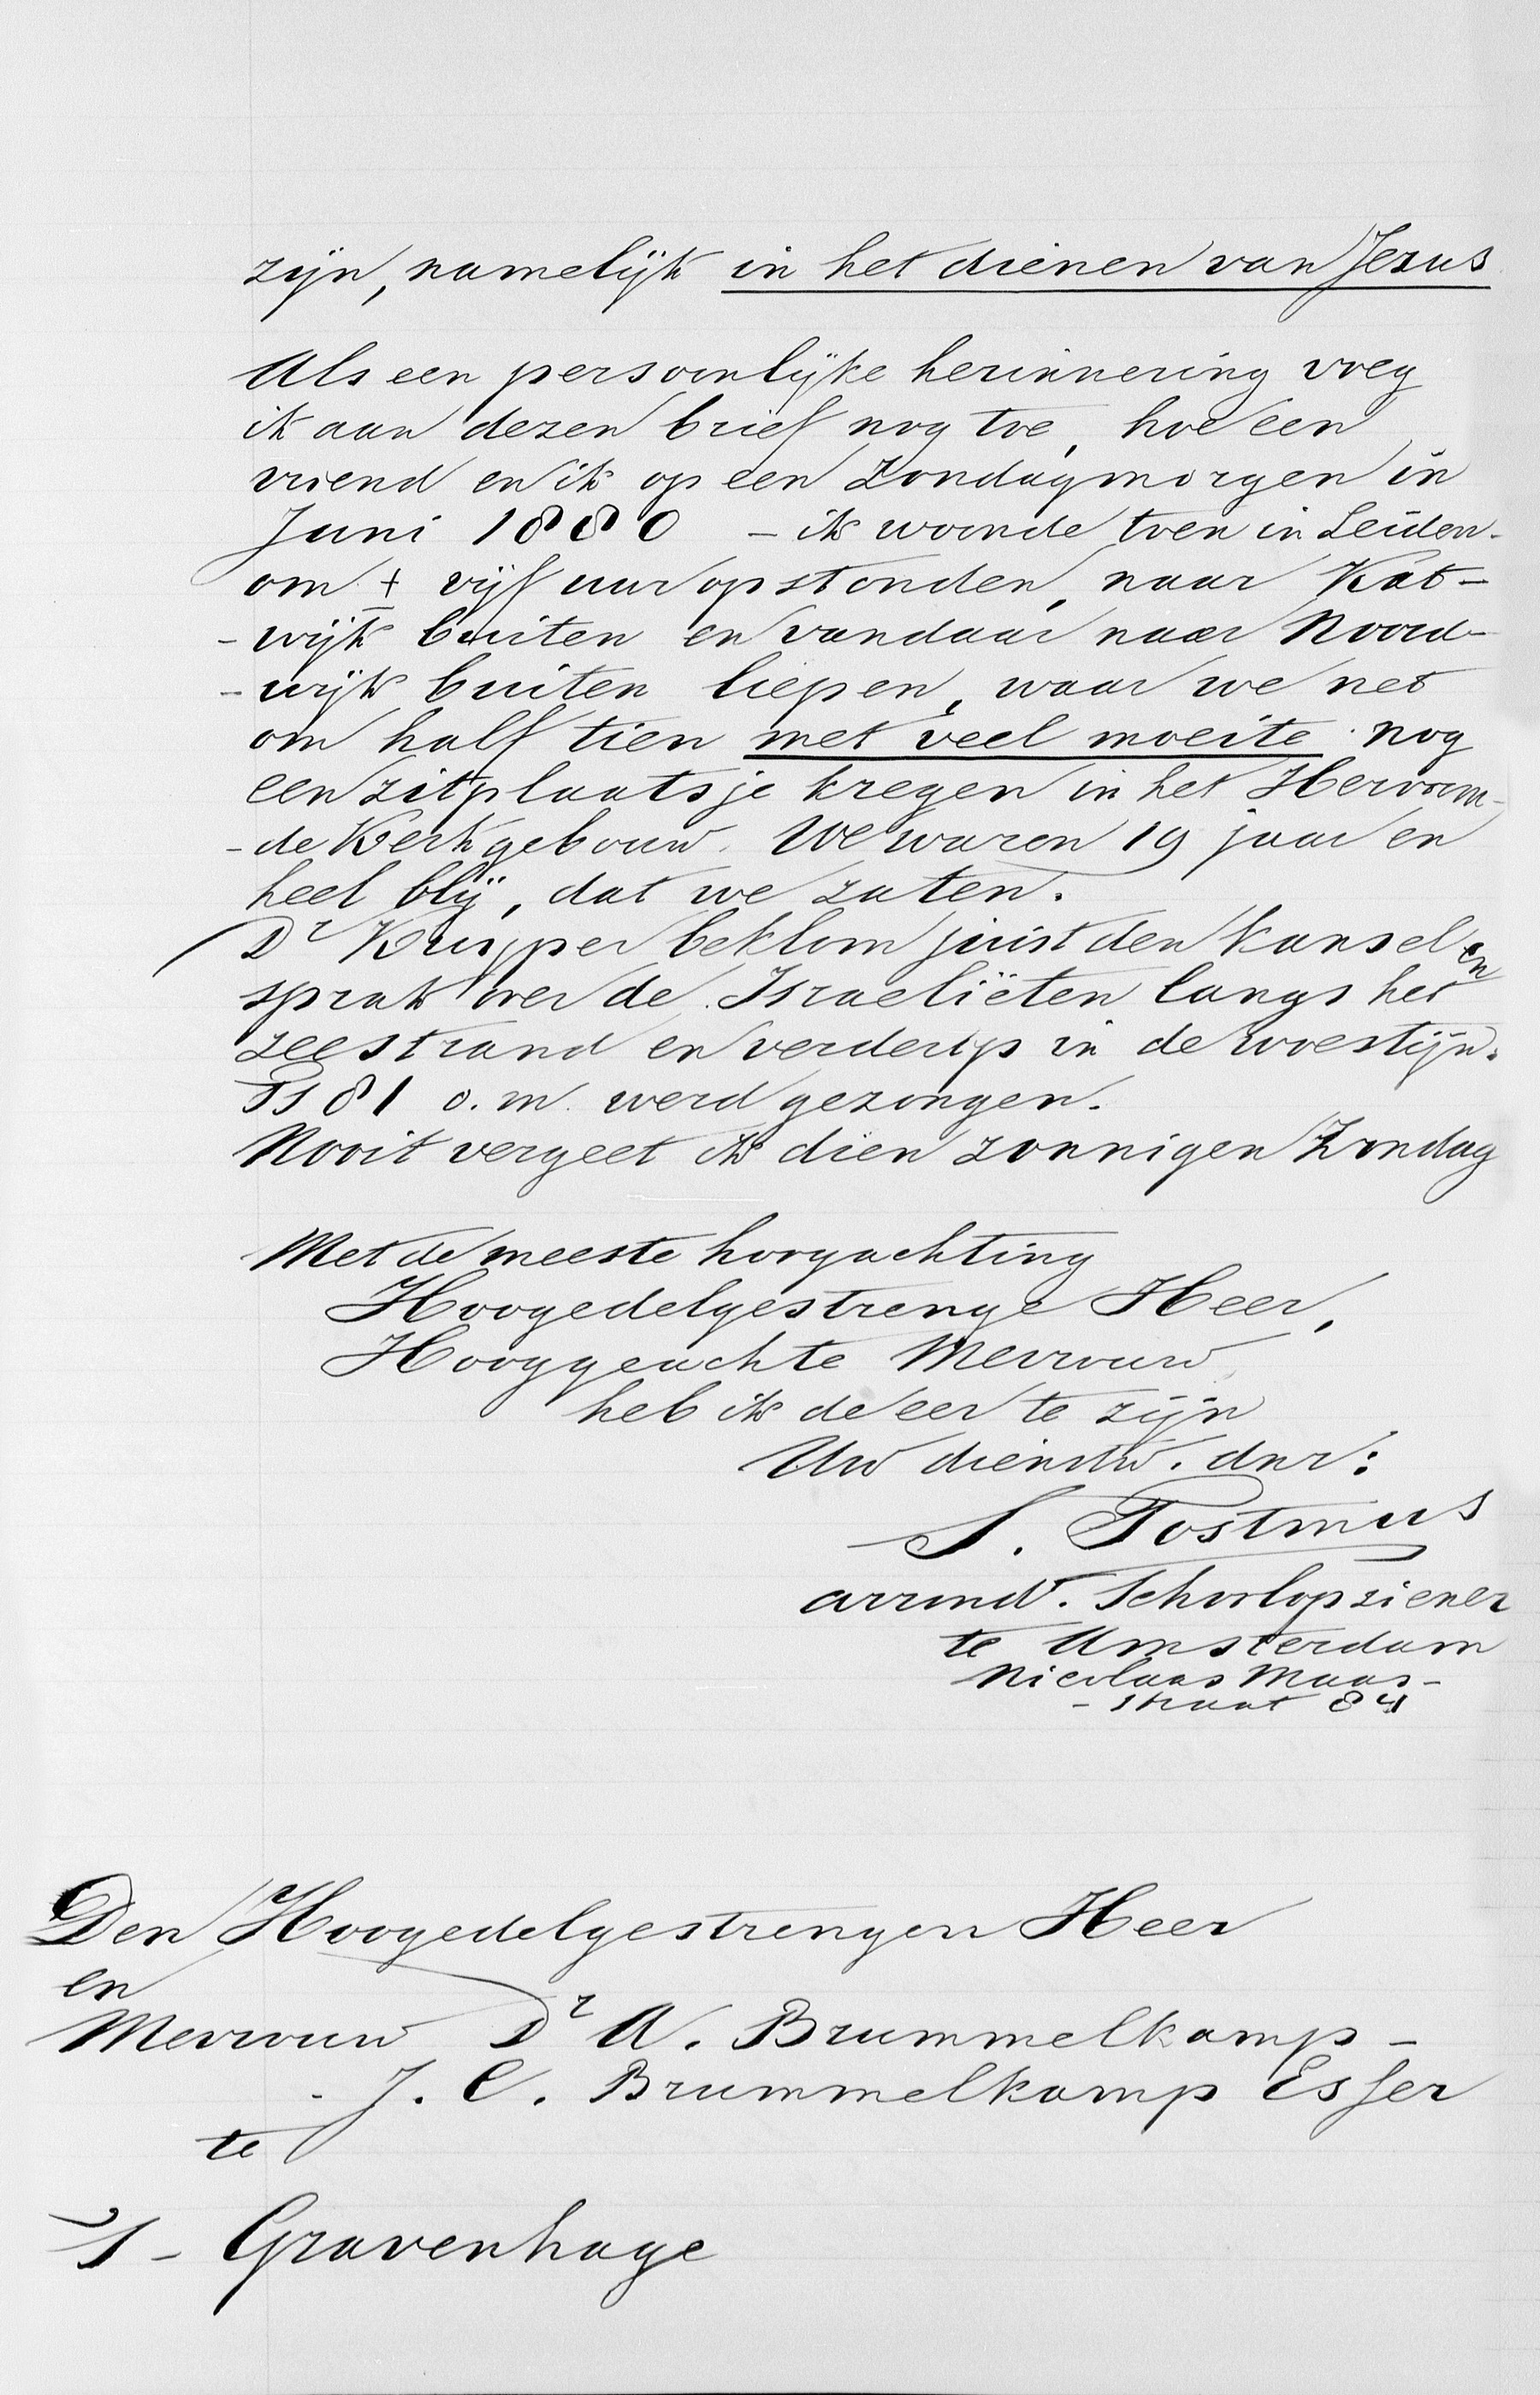 zijn, namelijk in het dienen van Jezus
Als een persoonlijke herinnering voeg
ik aan dezen brief nog toe, hoe een
vriend en ik op een Zondagmorgen in
Juni 1880 - ik woonde toen in Leiden -
om ± vijf uur opstonden, naar Kat-
-wijk buiten en vandaar naar Noord-
-wijk buiten liepen, waar we net
om half tien met veel moeite nog
een zitplaatsje kregen in het Hervorm-
-de Kerkgebouw. We waren 19 jaar en
heel blij, dat we zaten.
Dr Kuyper beklom juist den kansel en
sprak over de Israeliëten langs het
zeestrand en verderop in de woestijn.
Ps 81 o.m. werd gezongen.
Nooit vergeet ik dien zonnigen Zondag
Met de meeste hoogachting
Hoogedelgestrenge Heer,
Hooggeachte Mevrouw
heb ik de eer te zijn
Uw dienstw. dnr:
S. Postmus
arrond. Schoolopziener
te Amsterdam
Nicolaas Maas-
- straat 84
Den Hoogedelgestrengen Heer
en
Mevrouw Dr A. Brummelkamp -
- J. C. Brummelkamp Esser
te
's - Gravenhage